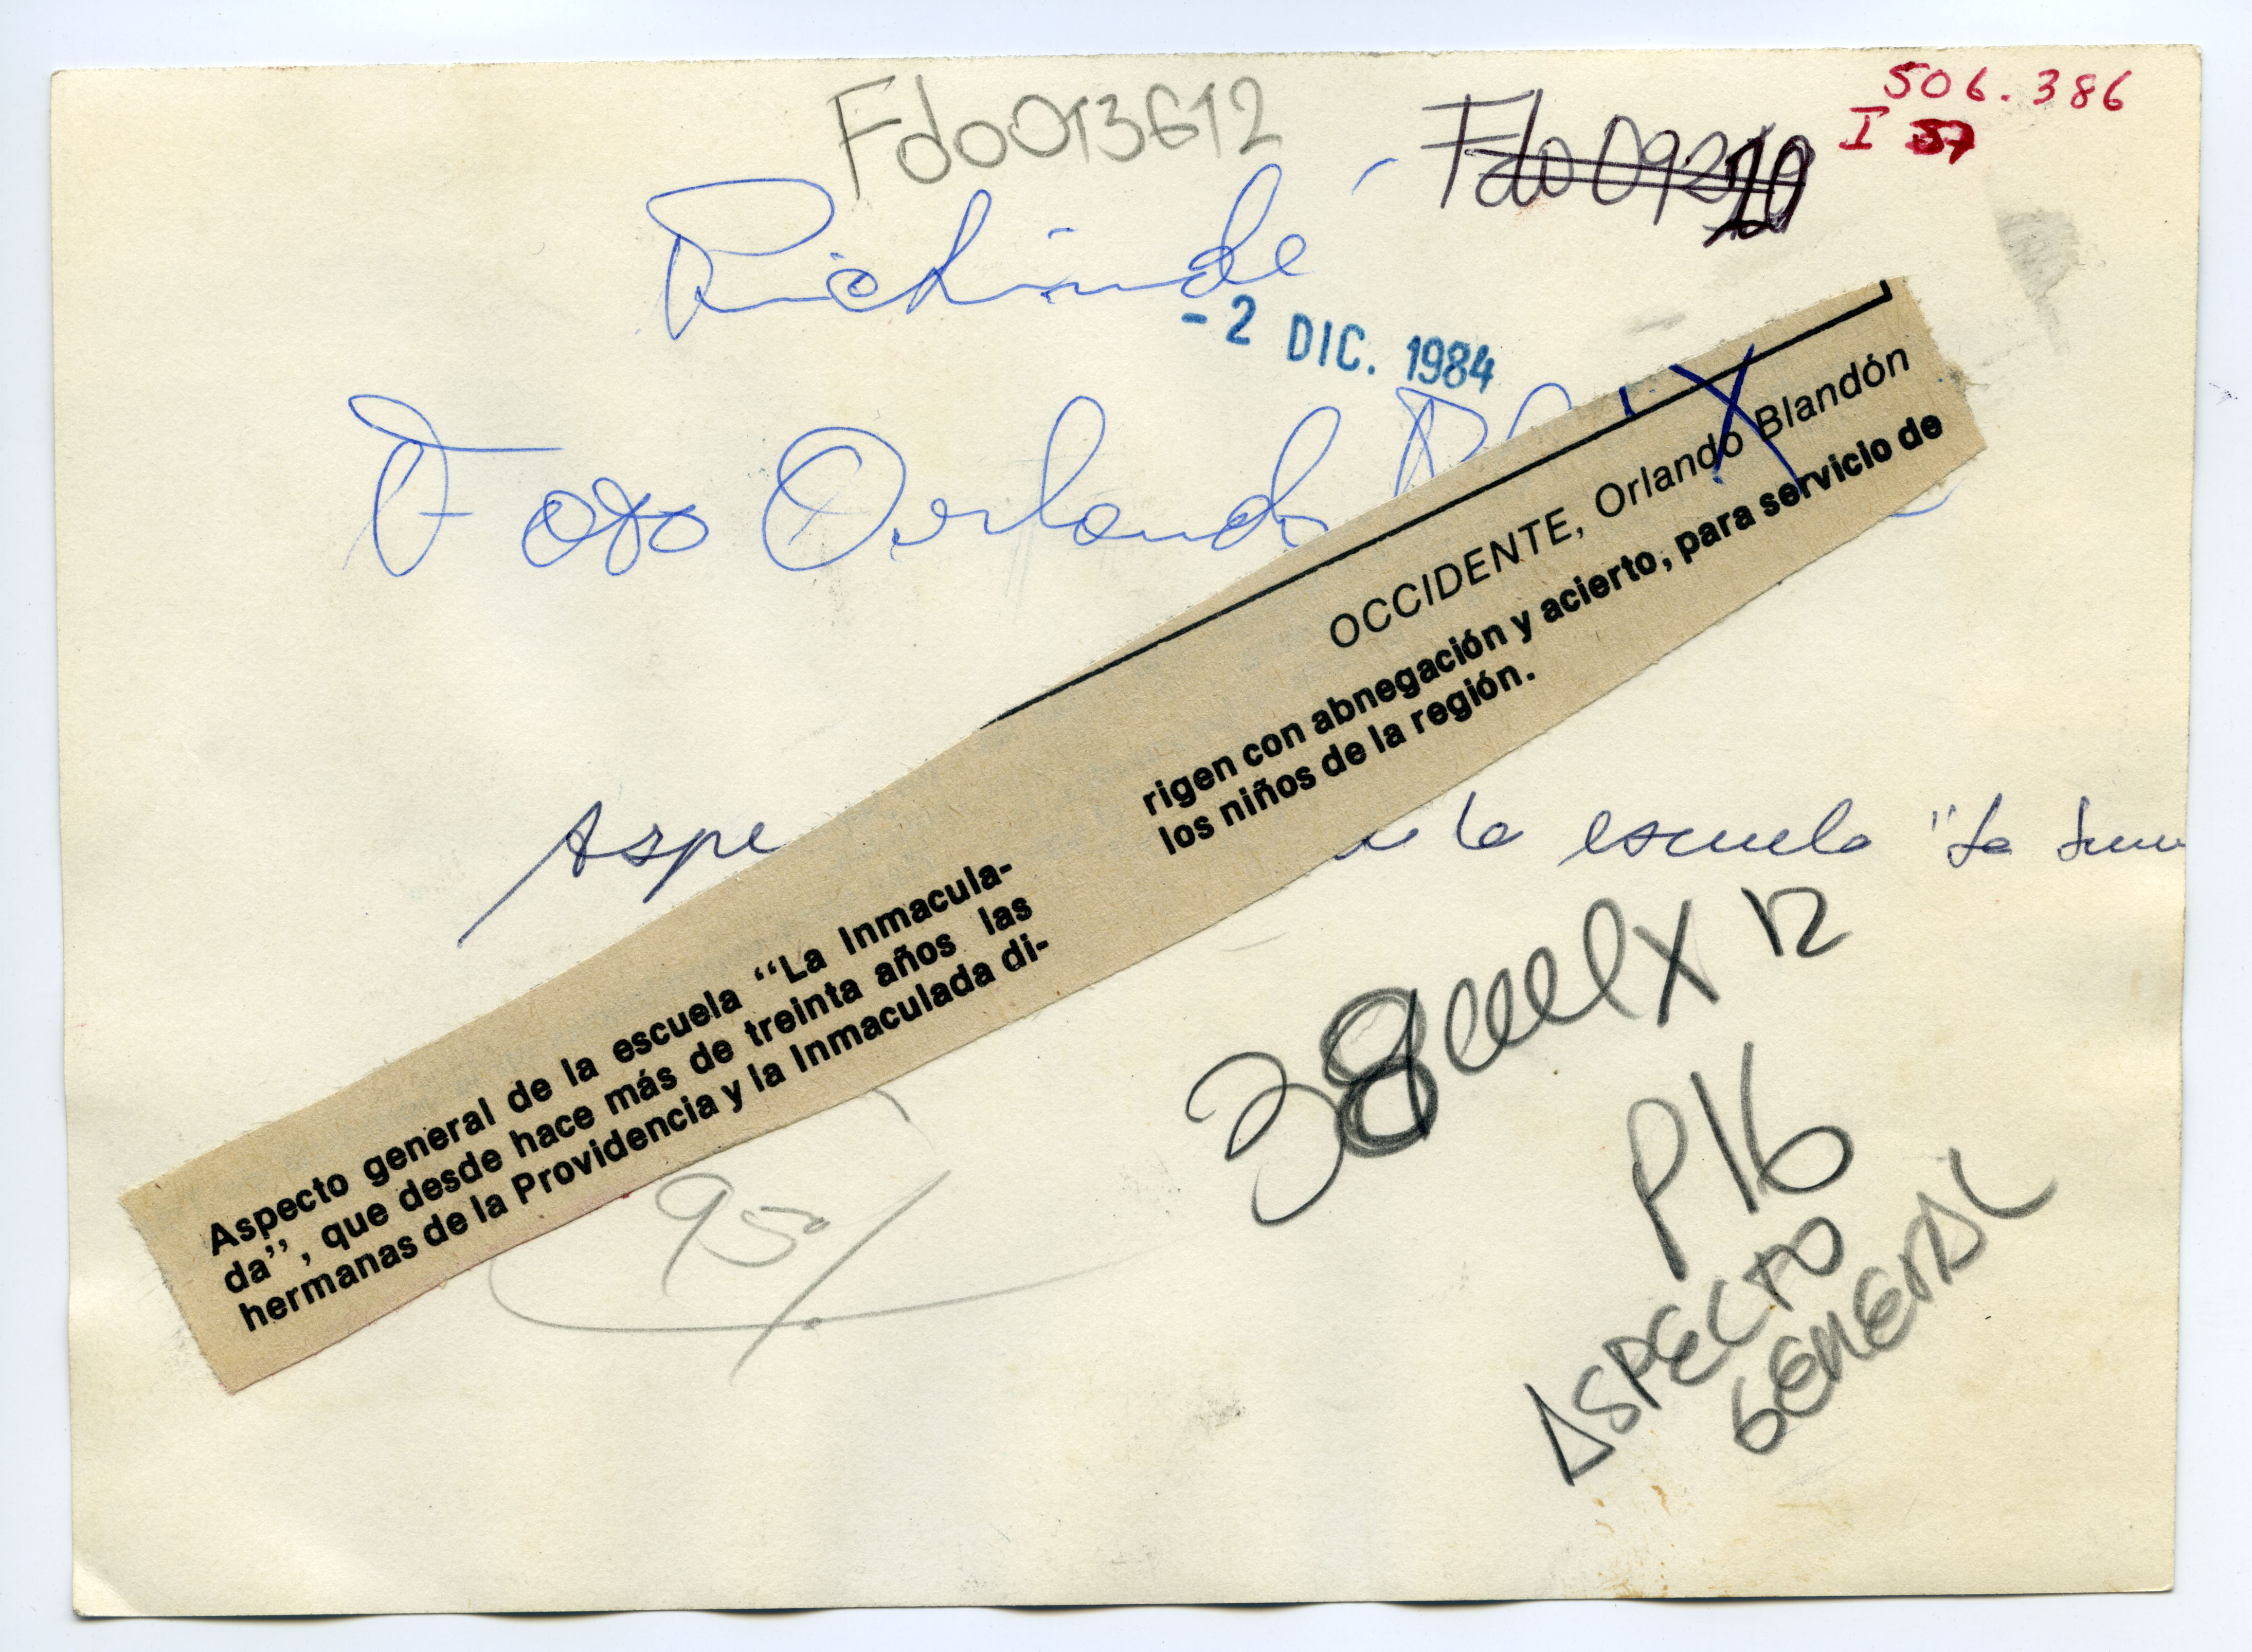 Fdo013612
506.386
I 57
Pichindé
-2 DIC. 1984
Foto Orlando
OCCIDENTE, Orlando Blandón
Aspecto general de la escuela “La Inmacula-
da”, que desde hace más de treinta años las
hermanas de la Providencia y la Inmaculada di-
rigen con abnegación y acierto, para servicio de
los niños de la región.
Aspe la escuela "La Inm
38 X 12
P16
ASPECTO
GENERAL
950/